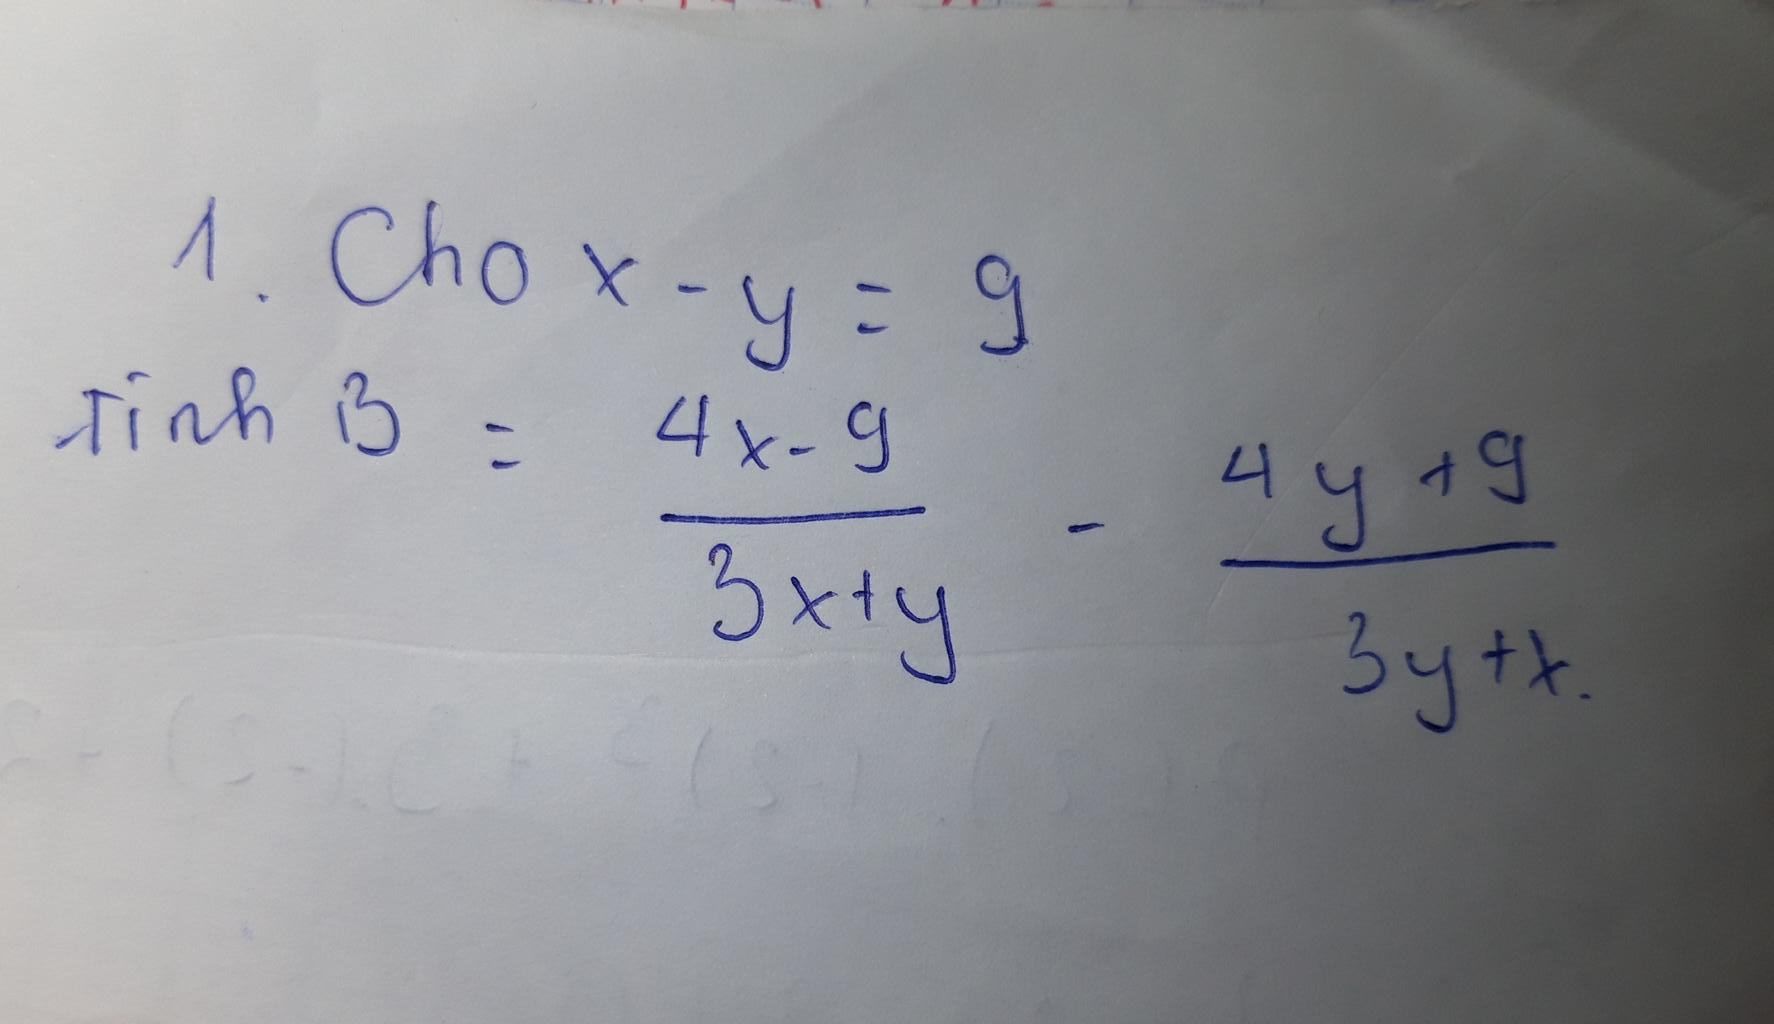 1. Cho x - y = 9
Tính B = \frac{4x - 9}{3x + y} - \frac{4y + 9}{3y + x}.